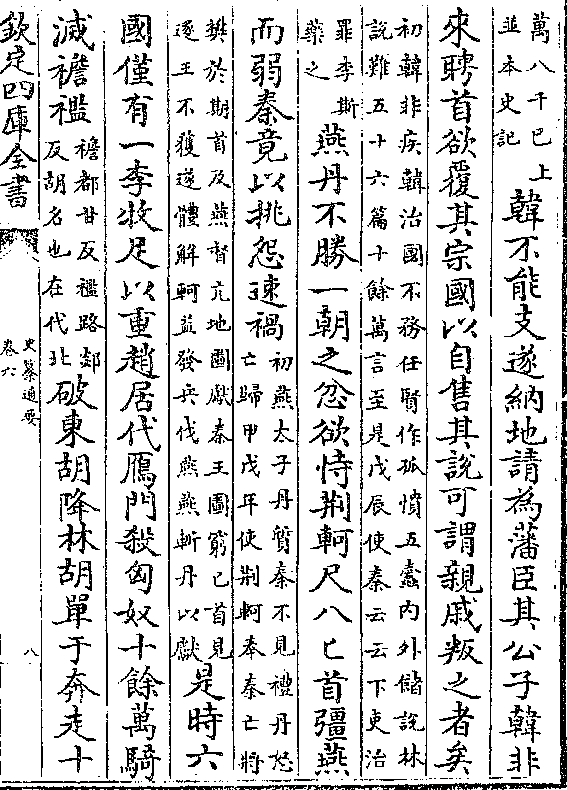 萬八千已上
並本史記
韓不能支遂納地請為藩臣其公子韓非
來聘首欲覆其宗國以自售其說可謂親戚叛之者矣
初韓非疾韓治國不務任賢作孤憤五蠹內外儲說林
說難五十六篇十餘萬言至是戊辰使秦云云下吏治
罪李斯
藥之
燕丹不勝一朝之忿欲恃荆軻尺八匕首彊燕
而弱秦竟以挑怨速禍
初燕太子丹質秦不見禮丹怒
亡歸甲戊年使荆軻奉秦亡將
樊於期首及燕督亢地圖獻秦王圖窮匕首見
逐王不獲遂體解軻益發兵伐燕燕斬丹以獻
是時六
國僅有一李牧足以重趙居代鴈門殺匈奴十餘萬騎
滅襜襤
襜都甘反襤路郯
反胡名也在代北
破東胡降林胡單于奔走十
欽定四庫全書
史纂通要
卷六
八